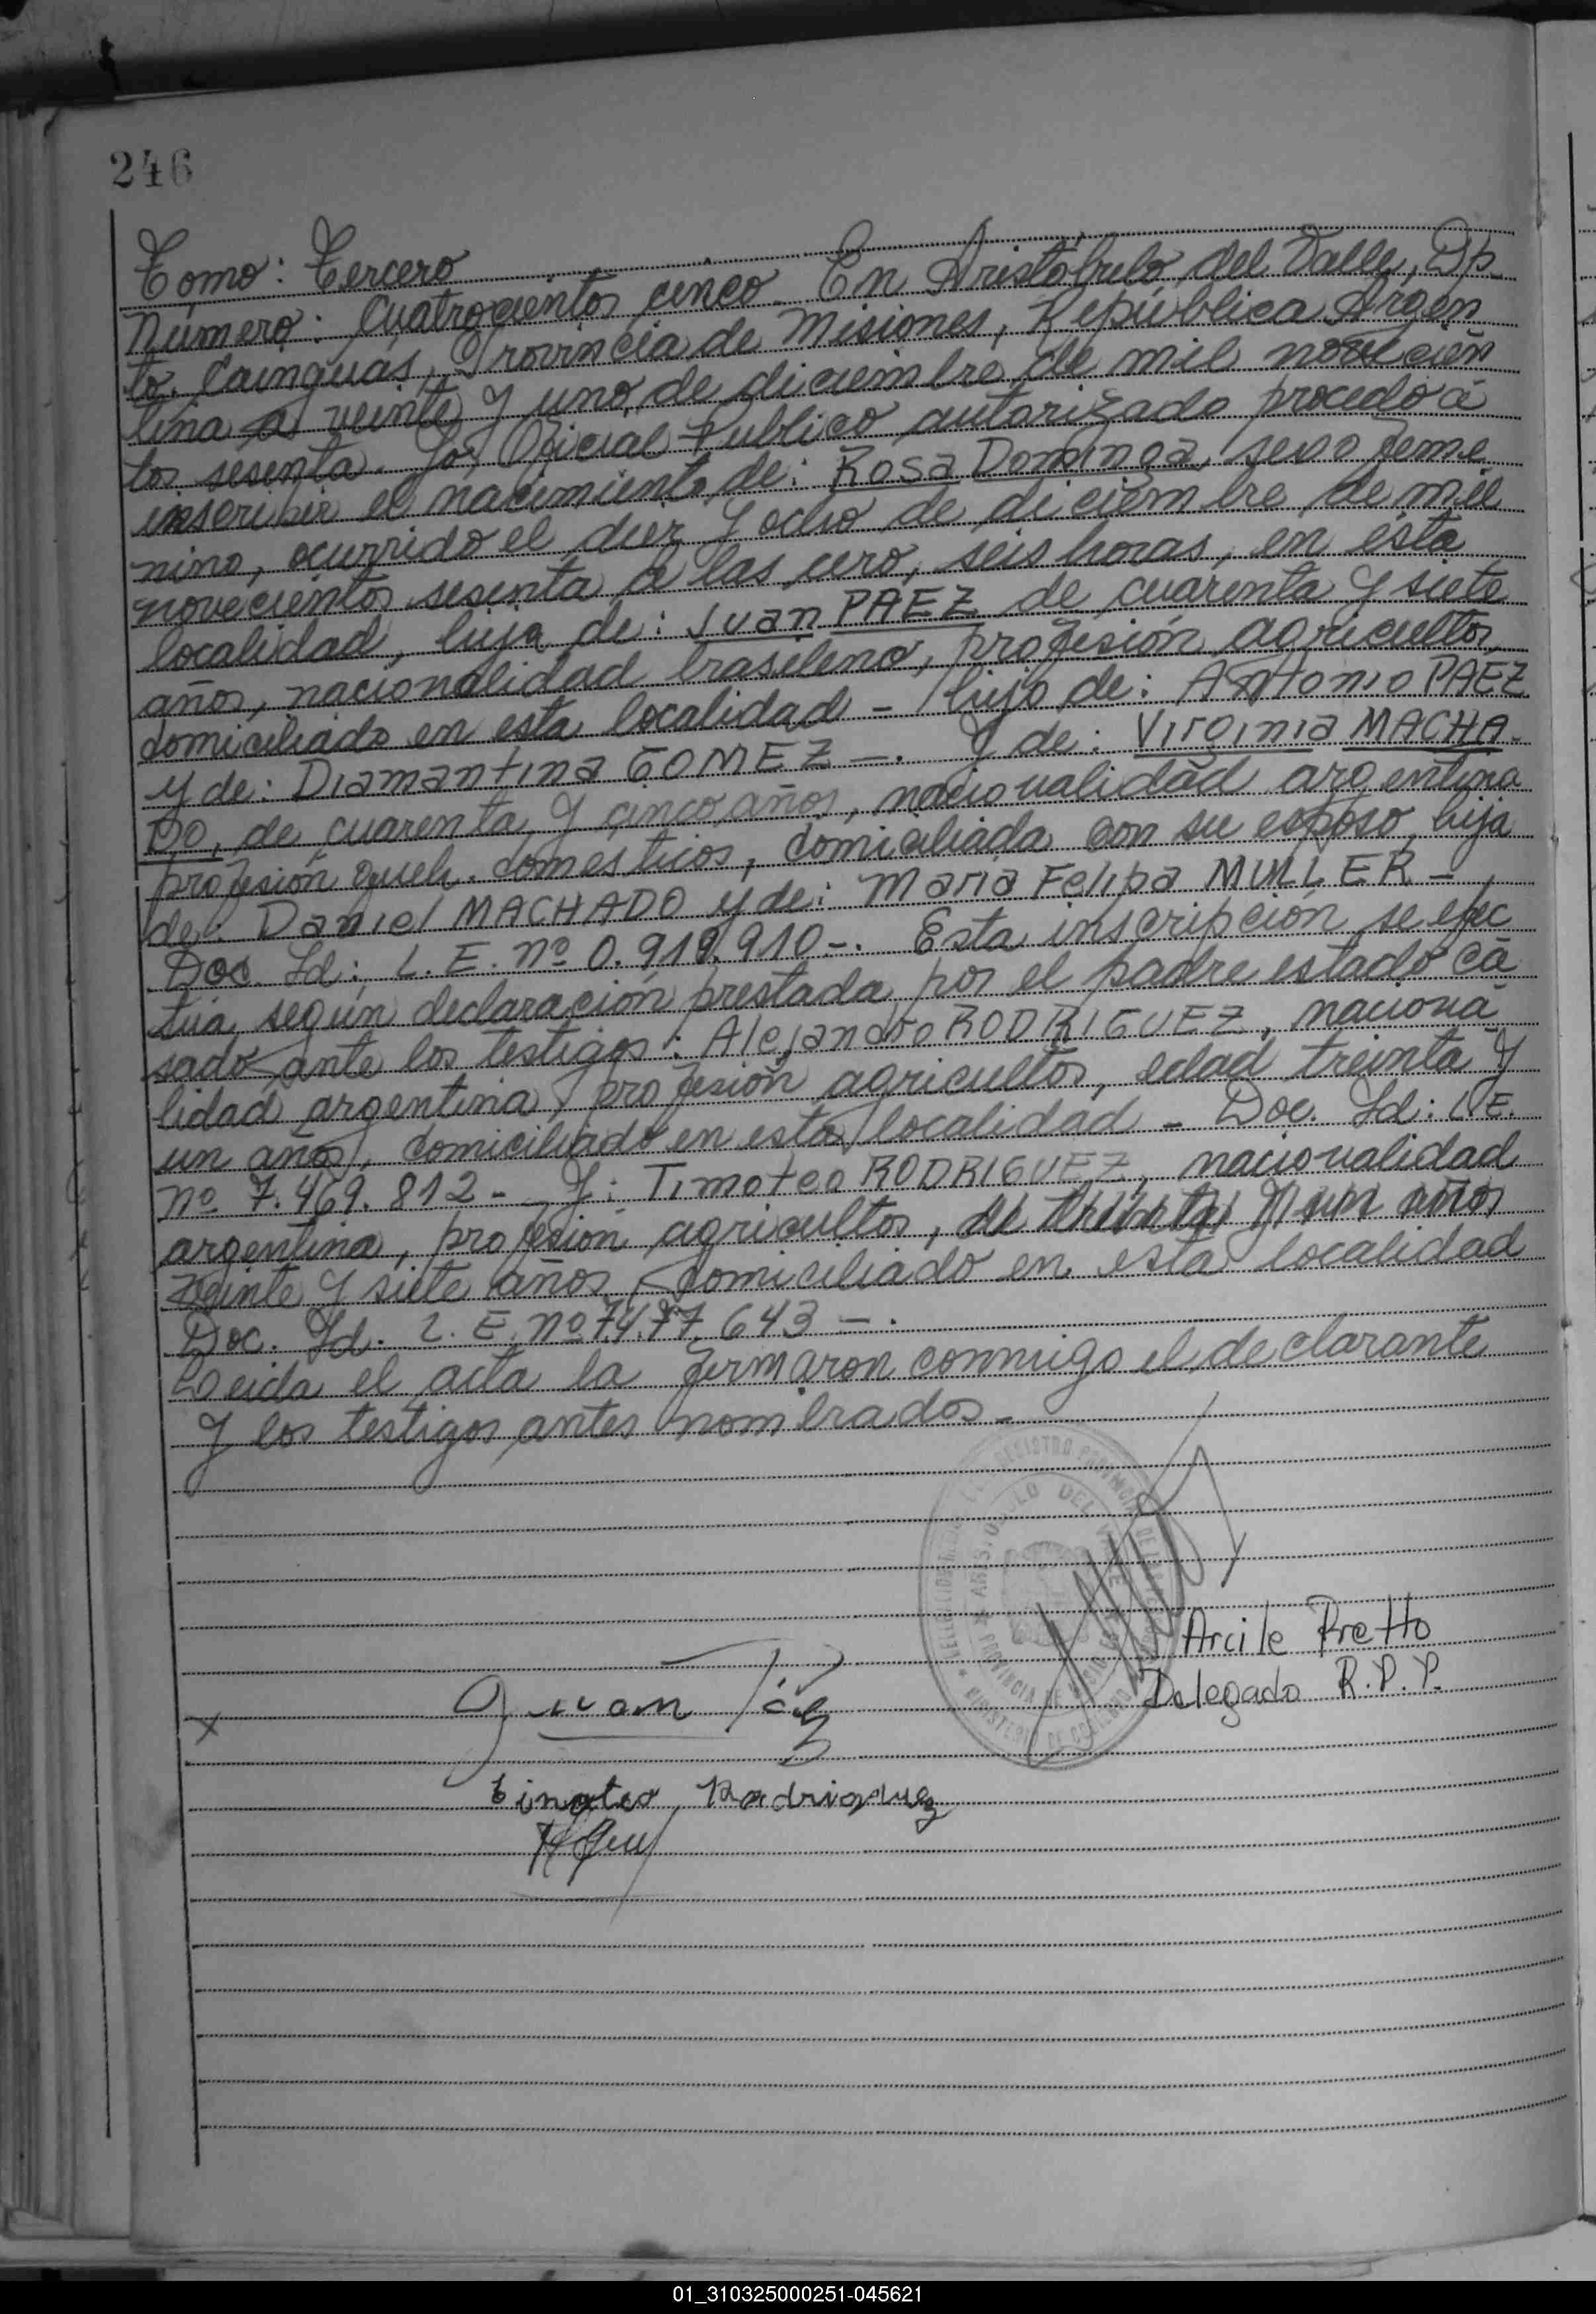 246
Tomo: Tercero
Número: Cuatrocientos cinco. En Aristóbulo del Valle, Dp
to. Cainguás, Provincia de Misiones, República Argen
tina a veinte y uno de diciembre de mil novecien
tos sesenta. Yo, Oficial Publico autorizado procedo a
inscribir el nacimiento de: Rosa Dominga, sexo feme
nino, ocurrido el diez y ocho de diciembre de mil
novecientos sesenta a las cero, seis horas, en esta
localidad, hija de: Juan PAEZ de cuarenta y siete
años, nacionalidad brasileno, profesión agricultor,
domiciliado en esta localidad - hijo de: Antonio PAEZ
y de: Diamantina GOMEZ -. Y de: Virginia MACHA-
DO, de cuarenta y cinco años, nacionalidad argentina
profesión queh. domesticos, domiciliada con su esposo, hija
de: Daniel MACHADO y de: Maria Felipa MULLER -
Doc. Id: L. E. nº 0.919.910-. Esta inscripción se efec
tua según declaración prestada por el padre estado ca
sado ante los testigos: Alejandro RODRIGUEZ, naciona
lidad argentina, profesión agricultor, edad treinta y
un años, domiciliado en esta localidad - Doc. Id: L.E.
nº 7.469.812- Y: Timoteo RODRIGUEZ, nacionalidad
argentina, profesión agricultor, de treinta y un años
veinte y siete años, domiciliado en esta localidad
Doc. Id. L. E. nº 7.477.643 -.
Leida el acta la firmaron conmigo el declarante
y los testigos antes nombrados-
Arcile Pretto
Delegado R.P.P.
x Juan Páez
timoteo Rodriguez
01_310325000251-045621